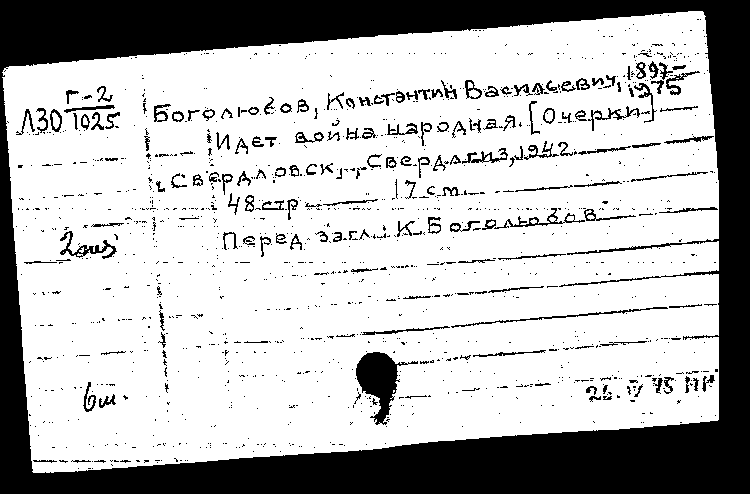 Г-2
Л30 1025
Боголюбов, Константин Васильевич, 1897-
1975
Идет война народная. [Очерки]
Свердловск, Свердлгиз, 1942
48 стр 17 см.
Перед загл.: К. Боголюбов
2 экз
6ш.